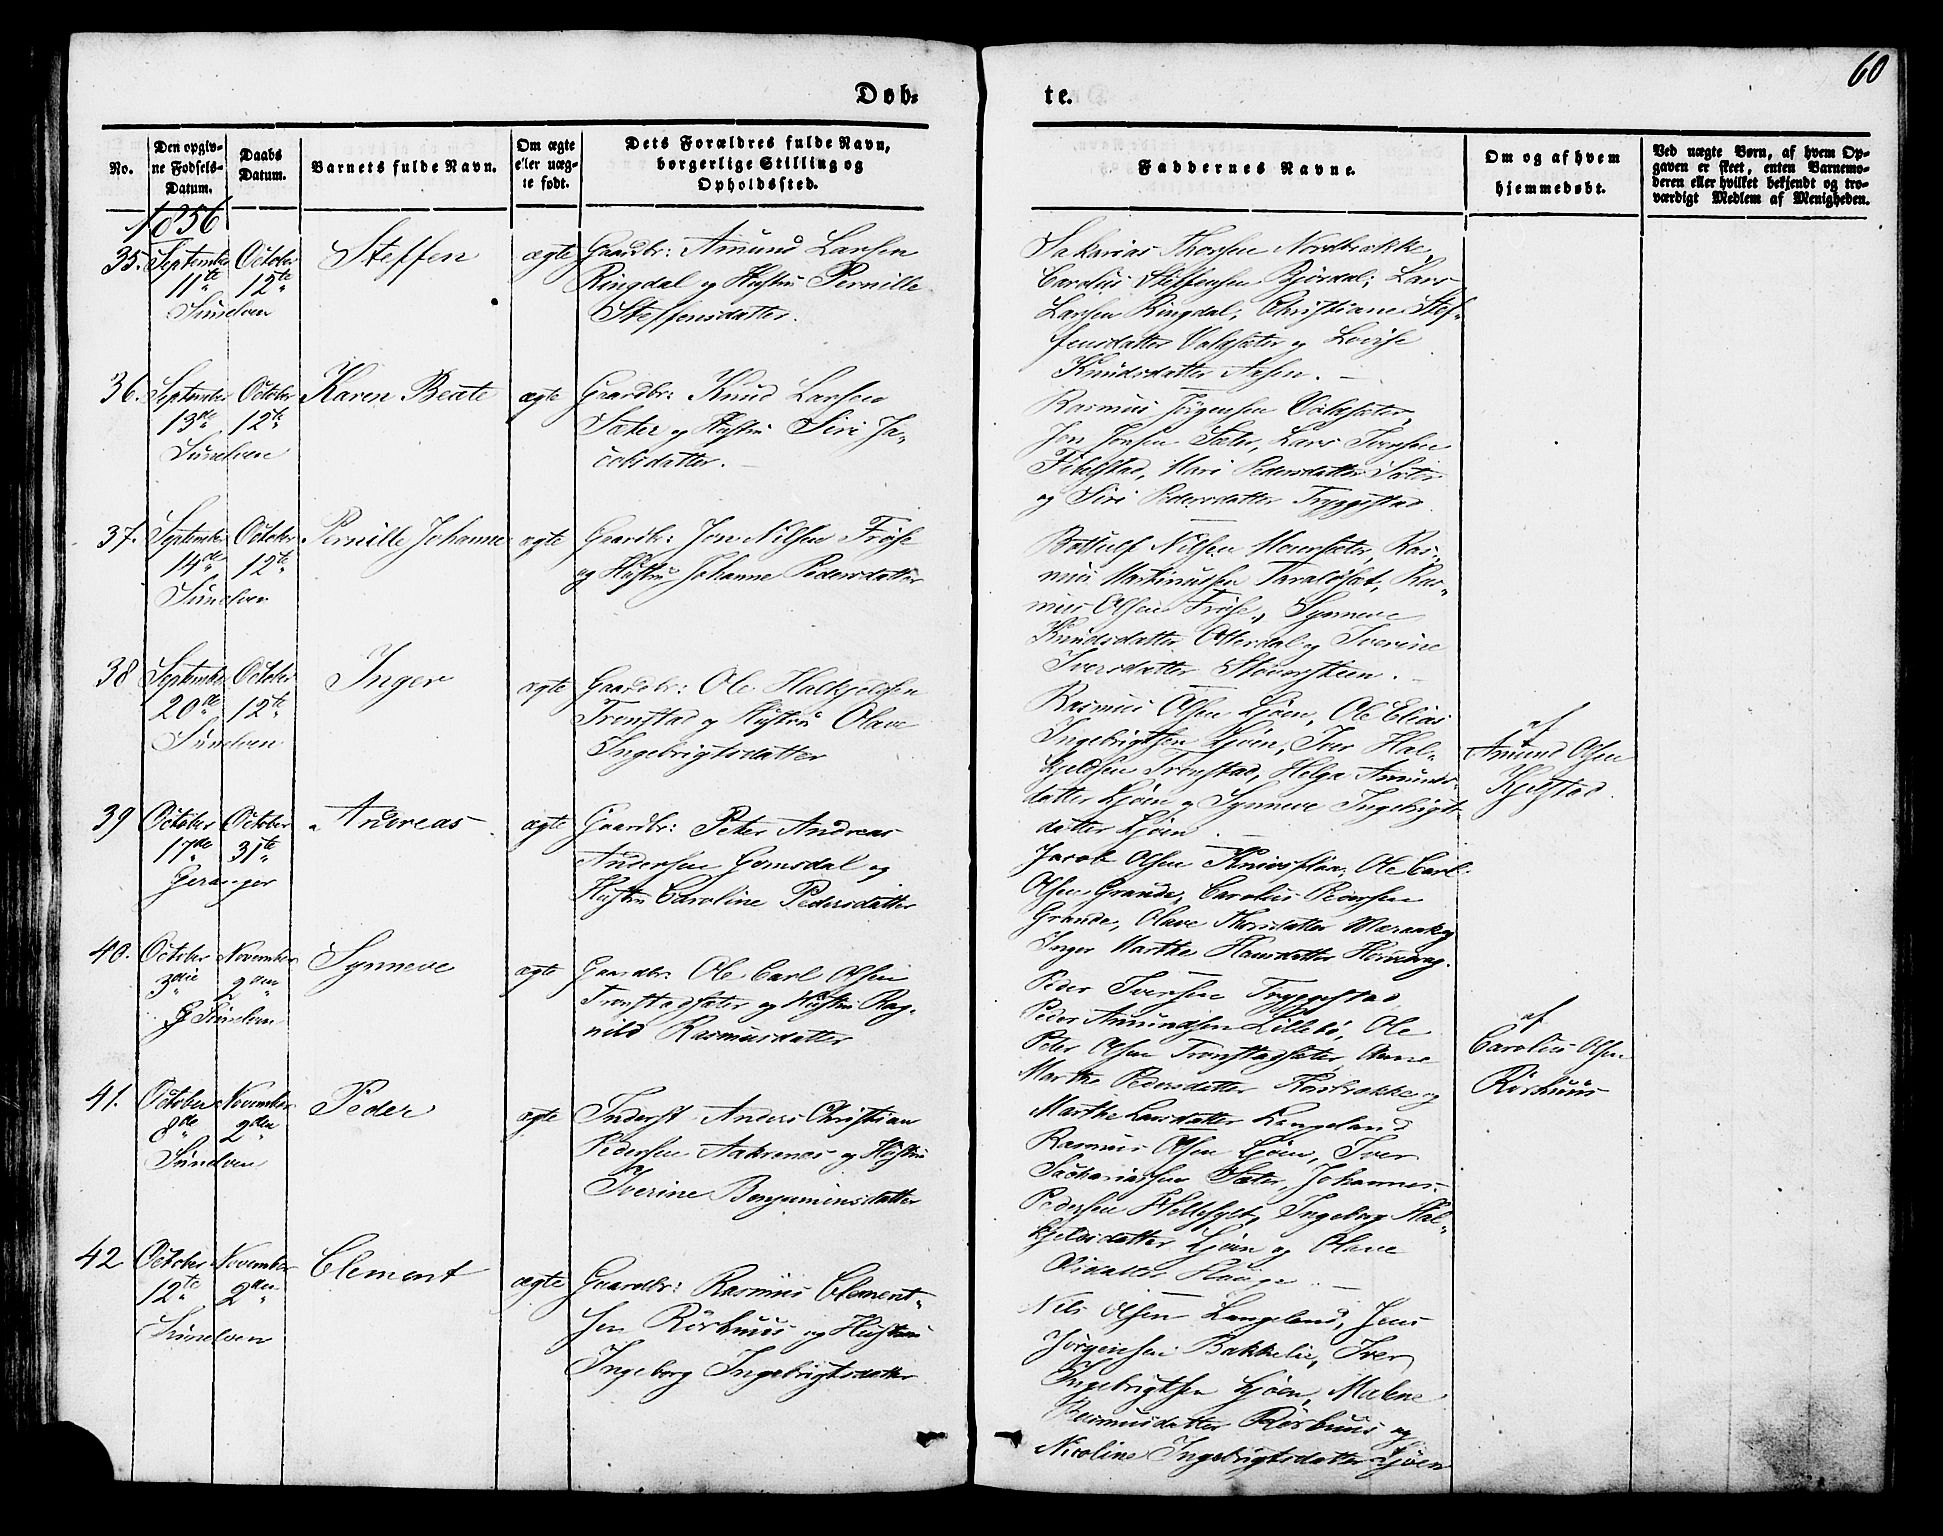 60
Døb-
te.
No.
Den opgiv-
ne Fødsels-
Datum.
Daabs
Datum.
Barnets fulde Navn.
Om ægte
eller uæg-
te født.
Dets Forældres fulde Navn,
borgerlige Stilling og
Opholdssted.
Faddernes Navne.
Om og af hvem
hjemmedøbt.
Ved uægte Børn, af hvem Op-
gaven er skeet, enten Barnemo-
deren eller hvilket bekjendt og tro-
værdigt Medlem af Menigheden.
1856
35. September 11te October 12te Steffen ægte Gaardbr: Amund Larsen
Sunelven
Ringdal og Hustru Pernille
Steffensdatter.
Sakarias Thorsen Nordbrække,
Carolius Steffensen Bjørdal; Lars
Larsen Ringdal; Christiane Stef-
fensdatter Valdsæter og Lovise
Knudsdatter Aasen.
36. September 13de October 12te Karen Beate ægte Gaardbr: Knud Larsen
Sunelven
Sæter og Hustru Siri Ja-
cobsdatter.
Rasmus Jørgensen Valdsæter,
Jon Jonsen Sæter, Lars Iversen
Fibelstad, Mari Pedersdatter Sæter
og Siri Pedersdatter Tryggestad.
37. September 14de October 12te Pernille Johanne ægte Gaardbr: Jon Nilsen Frøse
Sunelven
og Hustru Johanne Pedersdatter
Nilsen Ras-
mus Martinussen Ras-
mus Olsen Frøse, Synneve
Knudsdatter og Iverine
Iversdatter
38 September 20de October 12te Inger ægte Gaardbr: Ole Halkjeldsen
Sunelven
Tronstad og Hustru Olave
Ingebrigtsdatter
Rasmus Olsen Ljøen, Ole Elias
Ingebrigtsen Ljøen, Iver Hal-
kjeldsen Tronstad, Helga Amunds-
datter Ljøen og Synneve Ingebrigts-
datter Ljøen
af
Amund Olsen
Kjelstad.
39 October 17de October 31te Andreas ægte Gaardbr: Peter Andreas
Geranger
Andersen Gomsdal og
Hustru Caroline Pedersdatter
Jacob Olsen Knivsflaa, Ole Carl
Olsen Grande, Carolus
Grande, Olave Maraak og
Inger Marthe Hansdatter
40. October 3die November 2den Synneve ægte Gaardbr: Ole Carl Olsen
Sunelven
Tronstadsæter og Hustru Rag-
nild Rasmusdatter
Peder Iversen Tryggestad,
Peder Amundsen Lillebø, Ole
Peter Olsen Tronstadsæter, Anne
Marthe Pedersdatter og
Marthe Larsdatter Langeland
af
Carolius Olsen
Rørhuus
41. October 8de November 2den Peder ægte Inderst Anders Christian
Sunelven
Pedersen Aakrenæs og Hustru
Iverine Benjaminsdatter
Rasmus Olsen Ljøen, Iver
Sachariassen Sæter, Johannes
Pedersen Hellesylt, Ingeborg Hal-
kjeldsdatter Ljøen og Olave
42 October 12te November 2den Clement ægte Gaardbr: Rasmus Clement-
Sunelven
sen Rørhuus og Hustru
Ingeborg Ingebrigtsdatter
Nils Olsen Langeland, Jens
Jørgensen Bakkelie, Iver
Ingebrigtsen Ljøen, Malene
Rasmusdatter Rørhuus og
Nicoline Ingebrigtsdatter Ljøen